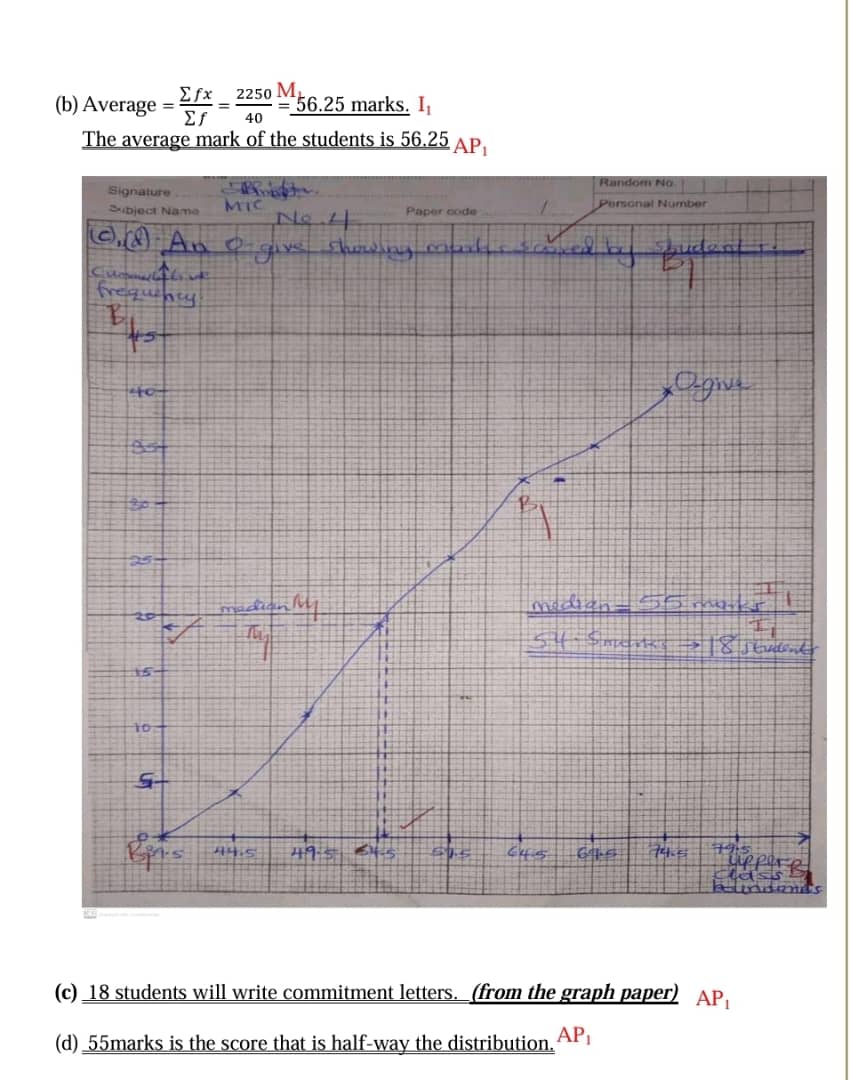 (b) Average = Σfx/Σf = 2250/40 M₁ = 56.25 marks. I₁
The average mark of the students is 56.25 AP₁
Signature
Random No.
Subject Name MTC
Paper code
Personal Number
No 4
(c),(d) An O-give showing marks scored by students.
B₁
Cummulative
frequency
B₁
45
40
O-give
35
30
B₁
25
median M₁
median = 55 marks I₁
20
M₁
I₁
54.5marks → 18 students
15
10
5
0
B₁
39.5 44.5 49.5 54.5 59.5 64.5 69.5 74.5 79.5
upper B₁
class
boundaries
(c) 18 students will write commitment letters. (from the graph paper) AP₁
(d) 55marks is the score that is half-way the distribution. AP₁